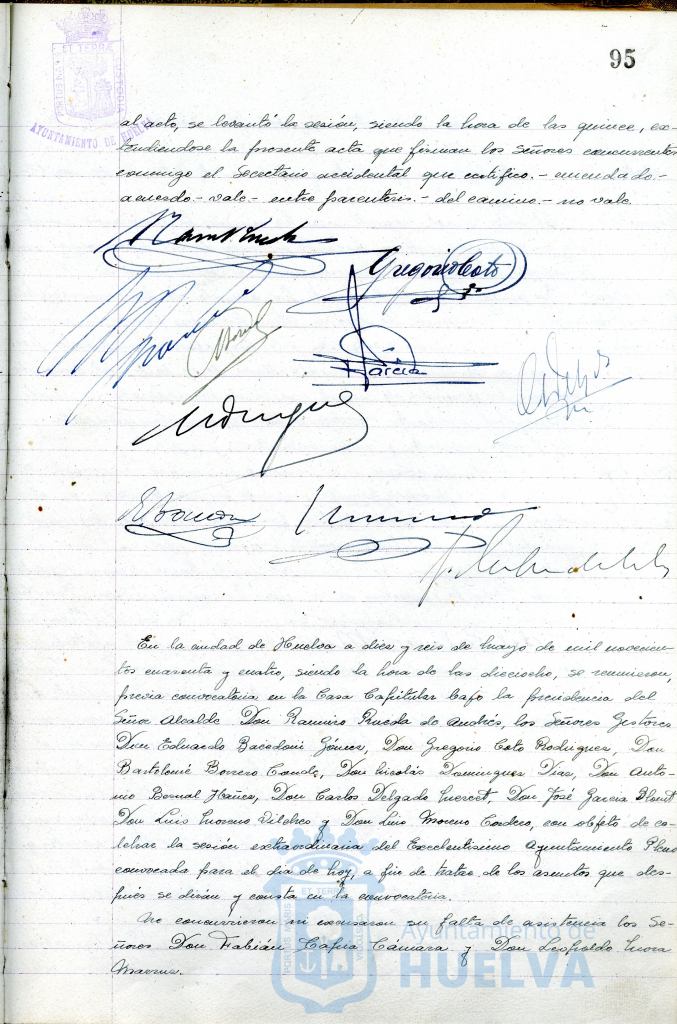 95
AYUNTAMIENTO DE HUELVA
al acto, se levantó la sesión, siendo la hora de las quince, ex-
tendiéndose la presente acta que firman los señores concurrentes
conmigo el Secretario accidental que certifico.- enmendado.-
acuerdo.- vale.- entre parentesis.- del camino.- no vale.
Gregorio Coto
García
En la ciudad de Huelva a diez y seis de mayo de mil novecien-
tos cuarenta y cuatro, siendo la hora de las dieciocho, se reunieron,
previa convocatoria en la Casa Capitular bajo la presidencia del
Señor Alcalde Don Ramiro Rueda de Andrés, los Señores Gestores
Don Eduardo Gómez, Don Gregorio Coto Rodriguez, Don
Bartolomé Borrero Conde, Don Nicolás Dominguez Diaz, Don Anto-
nio Bernal Ibáñez, Don Carlos Delgado, Don José Garcia
Don Luis Moreno y Don Lino Moreno Cordero, con objeto de ce-
lebrar la sesión extraordinaria del Excelentisimo Ayuntamiento Pleno
convocada para el día de hoy, a fin de tratar de los asuntos que des-
pués se dirán y consta en la convocatoria.
No concurrieron ni excusaron su falta de asistencia los Se-
ñores Don Fabián Tapia Cámara y Don Leopoldo Mora
Ayuntamiento de
HUELVA